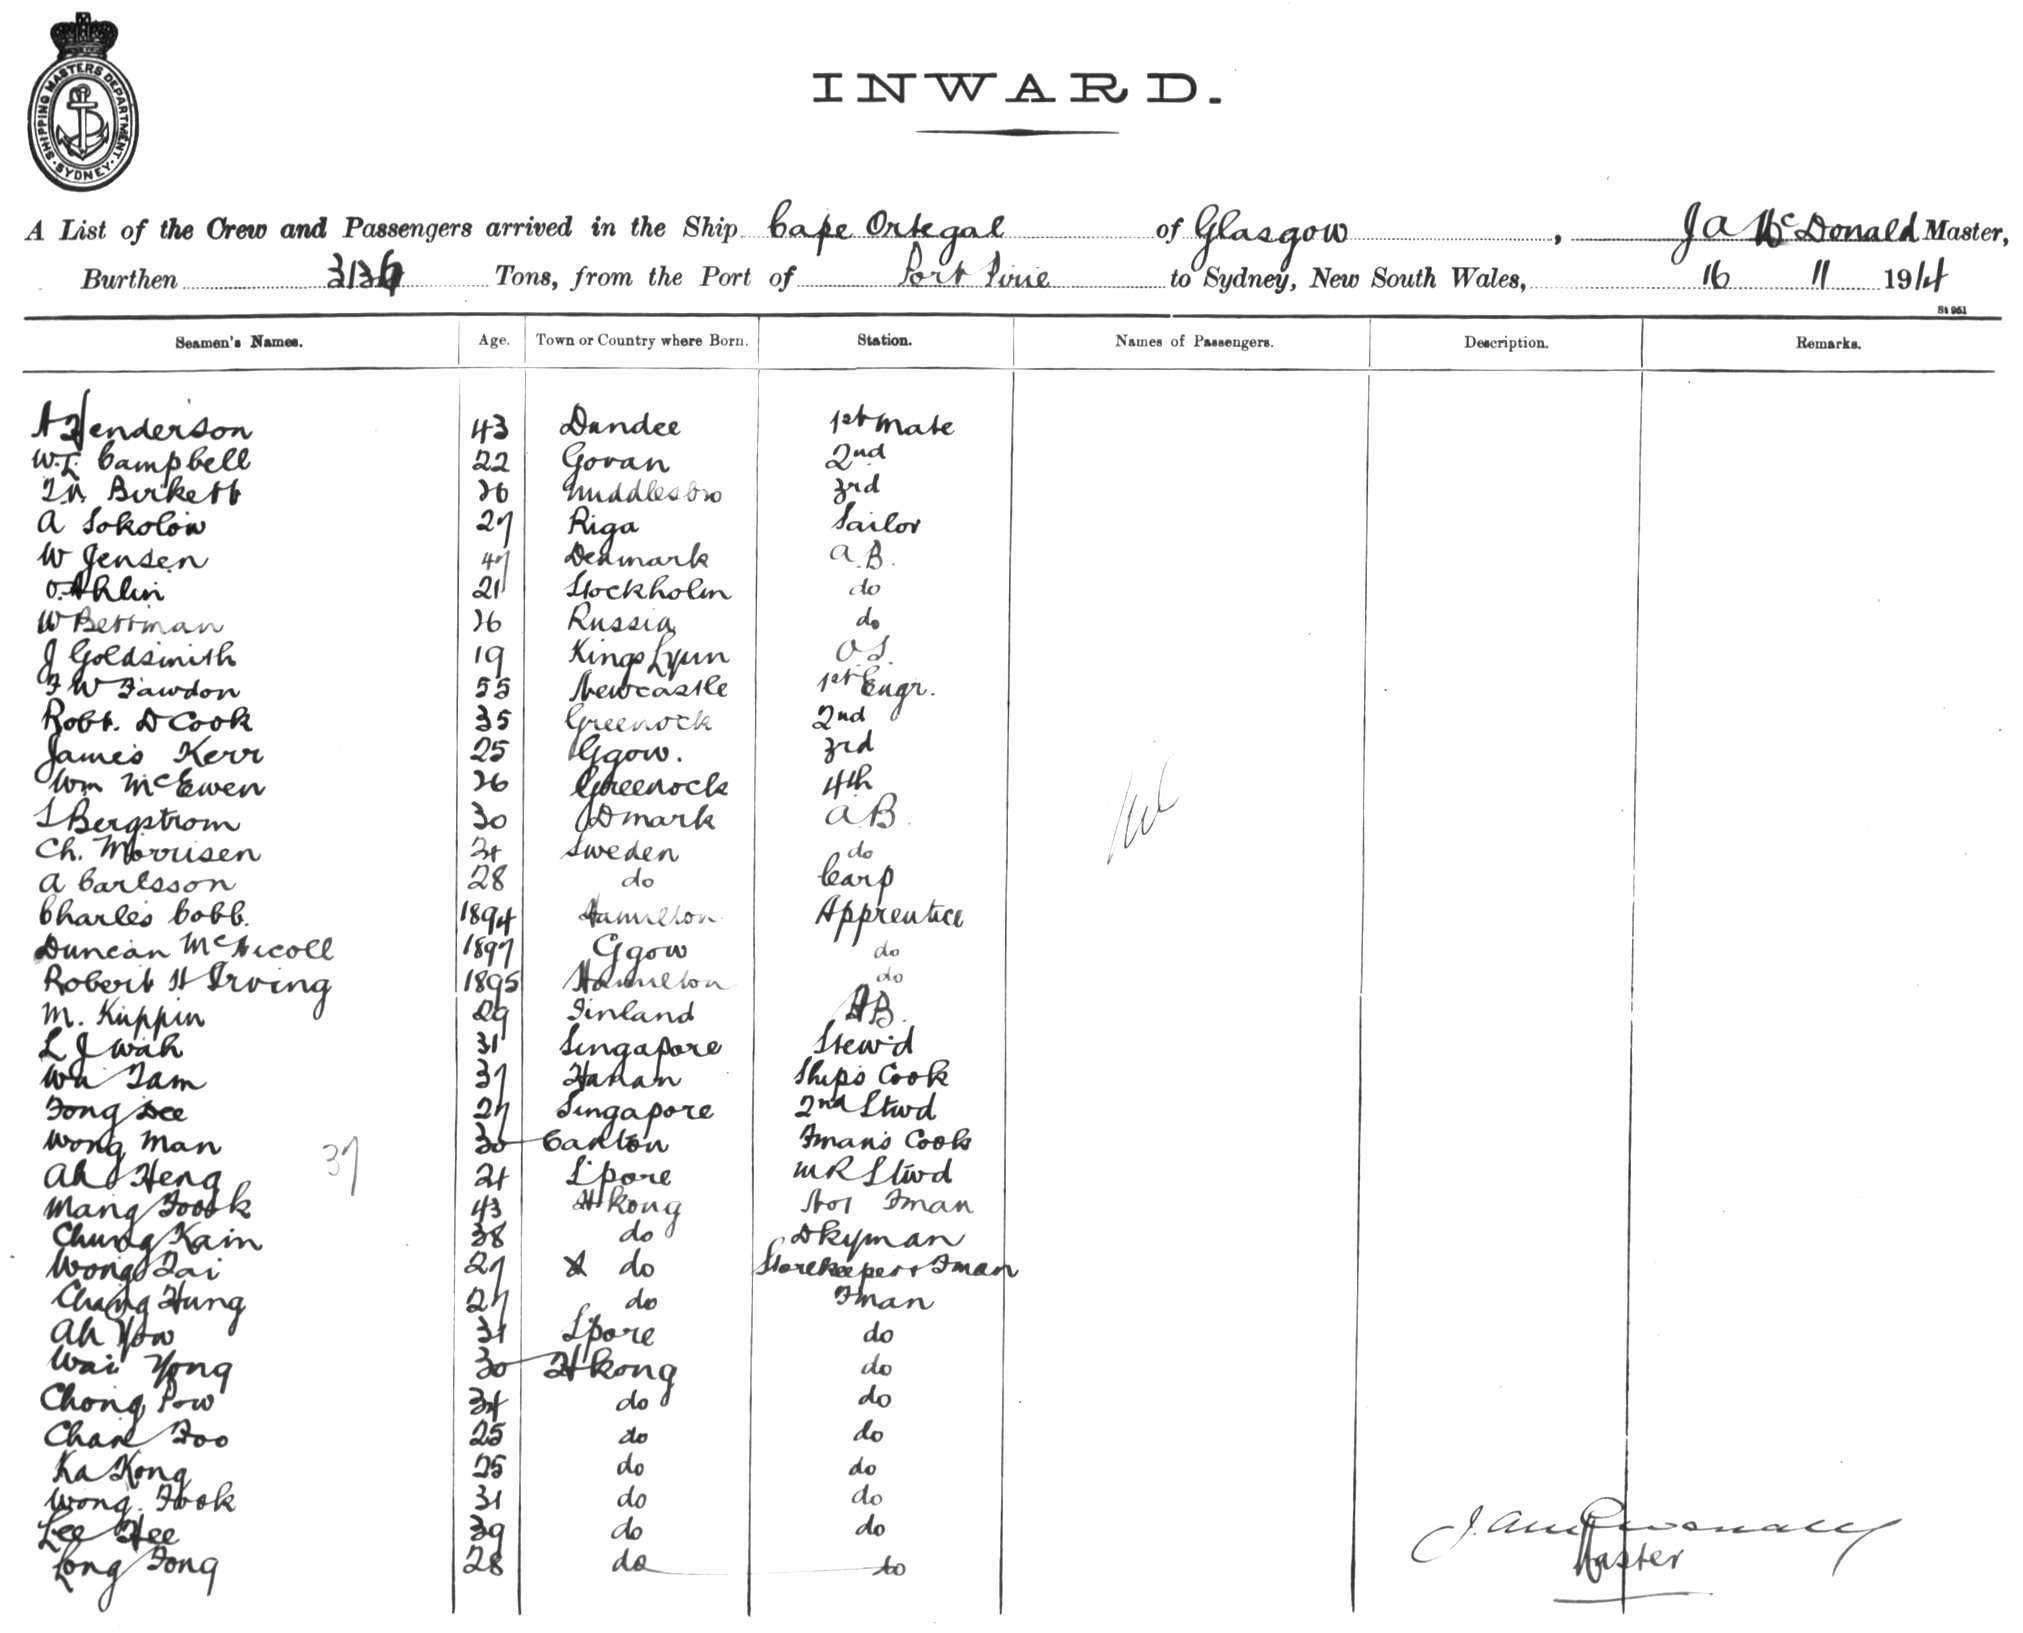 SHIPPING MASTERS DEPARTMENT SYDNEY
INWARD.
A List of the Crew and Passengers arrived in the Ship Cape Ortegal of Glasgow, J A McDonald Master,
Burthen 3136 Tons, from the Port of Port Pirie to Sydney, New South Wales, 16 11 1914
St 951
Seamen's Names. Age. Town or Country where Born. Station. Names of Passengers. Description. Remarks.
A Henderson 43 Dundee 1st Mate
W.L. Campbell 22 Govan 2nd
Birkett 26 Middlesbro 3rd
A Sokolow 27 Riga Sailor
W Jensen 47 Denmark A.B.
O. Ahlin 21 Stockholm do
W Bettman 26 Russia do
J Goldsmith 19 Kings Lynn O S.
F W Fawdon 55 Newcastle 1st Engr.
Robt. D Cook 35 Greenock 2nd
James Kerr 25 Ggow. 3rd
Wm McEwen 26 Greenock 4th
S Bergstrom 30 Dmark A B.
Ch. Morrisen Sweden do
A Carlsson 28 do Carp
Charles Cobb. 1894 Hamilton Apprentice
Duncan McNicoll 1897 Ggow do
Robert H Irving 1895 Hamilton do
M. Kuppin 29 Finland AB.
L J Wah 31 Singapore Stew'd
Wa Tam 37 Hanan Ship's Cook
Tong See 27 Singapore 2nd Stwd
Wong Man 30 Canton Fman's Cook
37
Ah Heng 24 S'pore M R Stwd
Mang Foook 43 H kong No 1 Fman
Chung Kain 38 do Dkyman
Wong Tai 27 do Storekeeper & Fman
Chang Hung 27 do Fman
Ah Yow 31 S'pore do
Wai Yong 30 H kong do
Chong Pow 34 do do
Chan Foo 25 do do
Ka Kong 25 do do
Wong Fook 31 do do
Lee Hee 39 do do
Long Fong 28 do do
Nil
Master